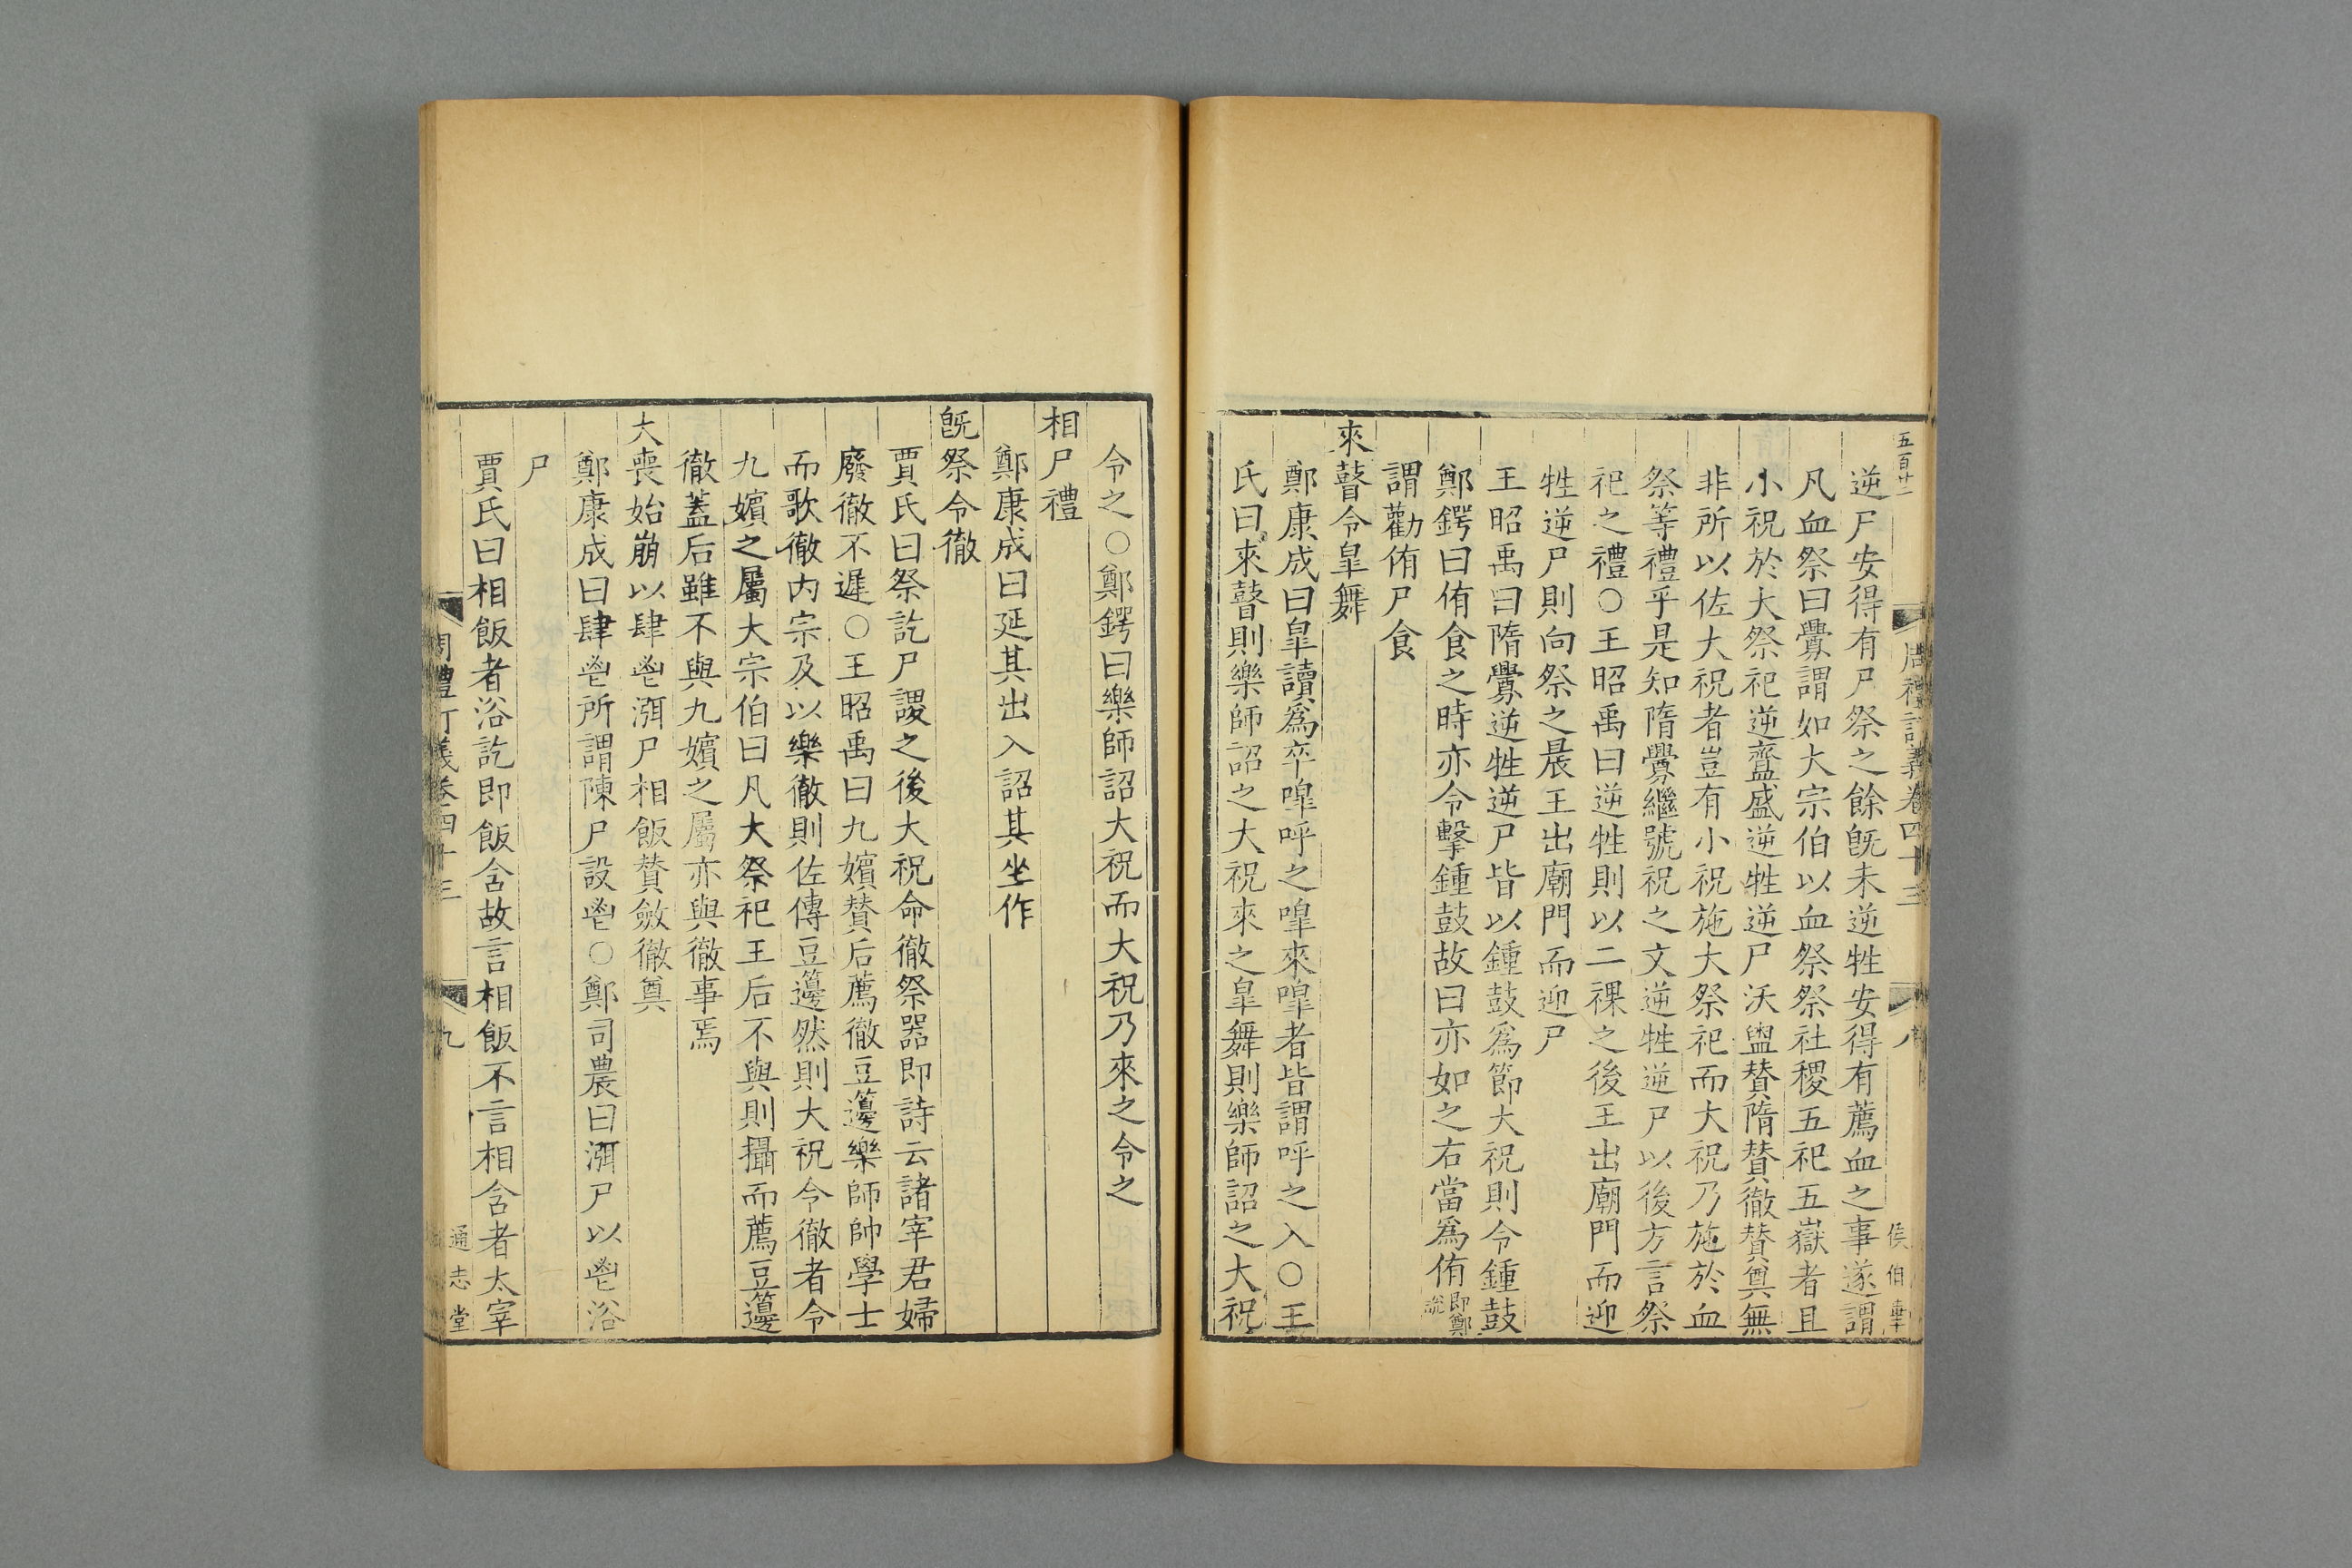 五百廿二
周禮訂義卷四十三
八
逆尸安得有尸祭之餘旣未逆牲安得有薦血之事遂謂
凡血祭曰釁謂如大宗伯以血祭祭社稷五祀五嶽者且
小祝於大祭祀逆齍盛逆牲逆尸沃盥賛隋賛徹賛奠無
非所以佐大祝者豈有小祝施大祭祀而大祝乃施於血
祭等禮乎是知隋釁繼號祝之文逆牲逆尸以後方言祭
祀之禮○王昭禹曰逆牲則以二祼之後王出廟門而迎
牲逆尸則向祭之晨王出廟門而迎尸
王昭禹曰隋釁逆牲逆尸皆以鍾鼓爲節大祝則令鍾鼓
鄭鍔曰侑食之時亦令擊鍾鼓故曰亦如之右當爲侑即鄭說
謂勸侑尸食
來瞽令臯舞
鄭康成曰臯讀爲卒嘷呼之嘷來嘷者皆謂呼之入○王
氏曰來瞽則樂師詔之大祝來之臯舞則樂師詔之大祝
令之○鄭鍔曰樂師詔大祝而大祝乃來之令之
相尸禮
鄭康成曰延其出入詔其坐作
旣祭令徹
賈氏曰祭訖尸謖之後大祝命徹祭器即詩云諸宰君婦
廢徹不遲○王昭禹曰九嬪賛后薦徹豆籩樂師帥學士
而歌徹内宗及以樂徹則佐傳豆籩然則大祝令徹者令
九嬪之屬大宗伯曰凡大祭祀王后不與則攝而薦豆籩
徹蓋后雖不與九嬪之屬亦與徹事焉
大喪始崩以肆鬯渳尸相飯賛斂徹奠
鄭康成曰肆鬯所謂陳尸設鬯○鄭司農曰渳尸以鬯浴
尸
賈氏曰相飯者浴訖即飯含故言相飯不言相含者太宰
周禮訂義卷四十三
九
通志堂